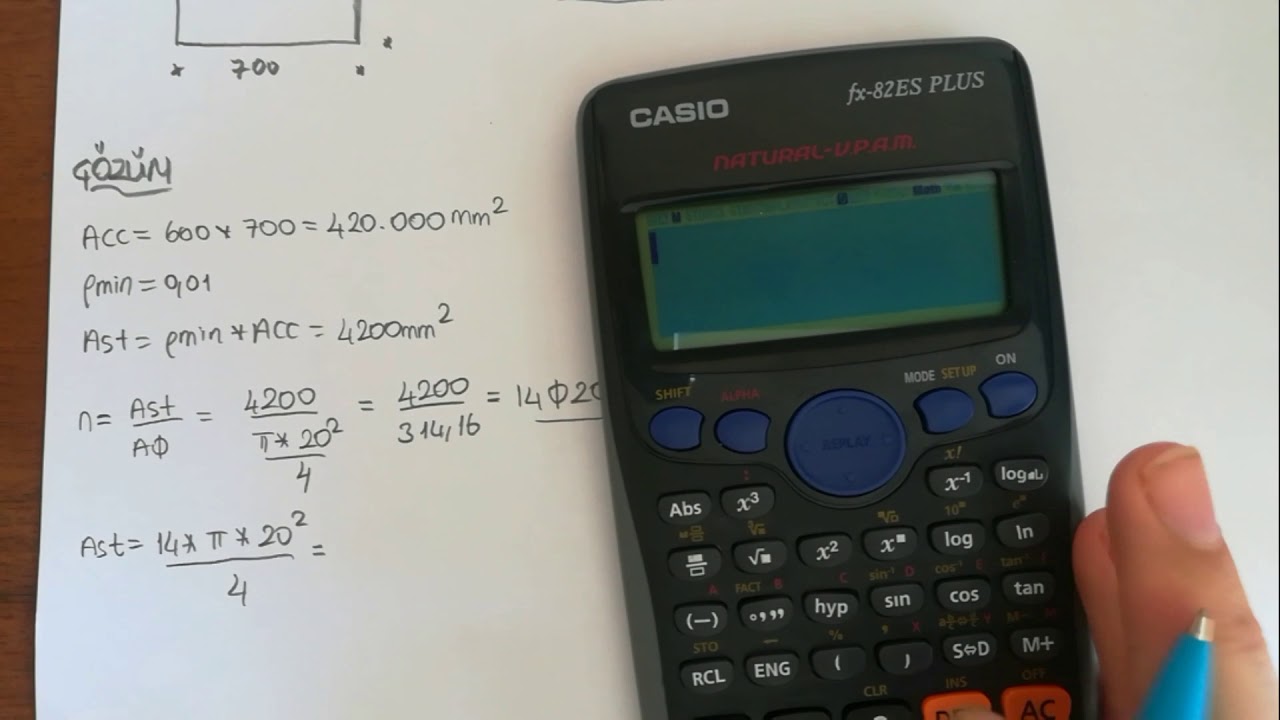 700
ÇÖZÜM
Acc = 600 * 700 = 420.000 mm²
ρmin = 0,01
Ast = ρmin * Acc = 4200mm²
n = Ast/AΦ = 4200/(π * 20²/4) = 4200/314,16 = 14Φ20
Ast = 14 * π * 20²/4 =
CASIO
fx-82ES PLUS
NATURAL-V.P.A.M.
Math
SHIFT ALPHA MODE SETUP ON
REPLAY
x!
Abs x³ x⁻¹ log
10ˣ eˣ
√ x² x log ln
A FACT B C sin⁻¹ D cos⁻¹ E tan⁻¹ F
(−) hyp sin cos tan
STO % , X Y M− M
RCL ENG ( ) S⇔D M+
CLR INS OFF
AC